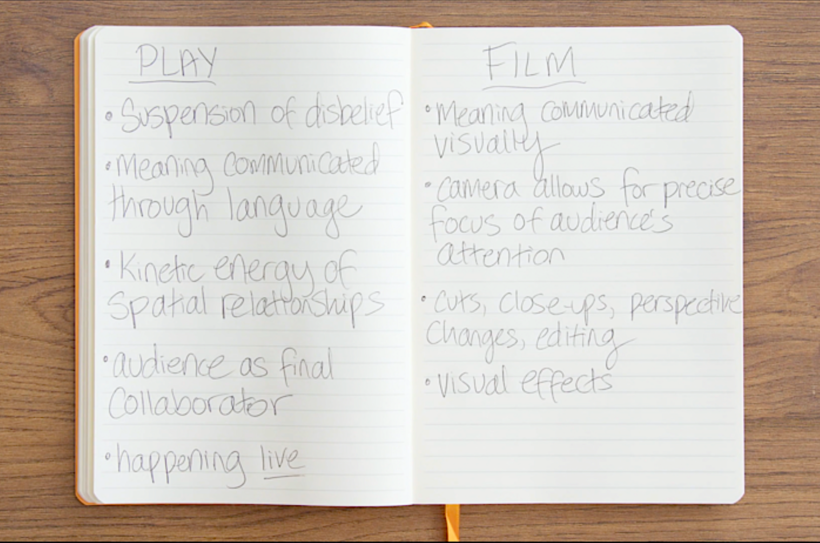 PLAY
• Suspension of disbelief
• Meaning communicated
through language
• Kinetic energy of
spatial relationships
• audience as final
Collaborator
• happening live
FILM
• Meaning communicated
visually
• camera allows for precise
focus of audience's
attention
• cuts, close-ups, perspective
changes, editing
• visual effects